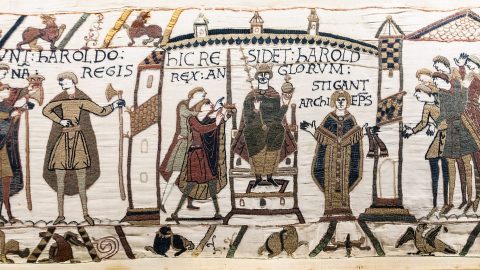 VNT: hAROLDO:
NA REGIS
hIC RE SIDET: hAROLD
REX: AN GLORVM:
STIGANT
ARChI EPS